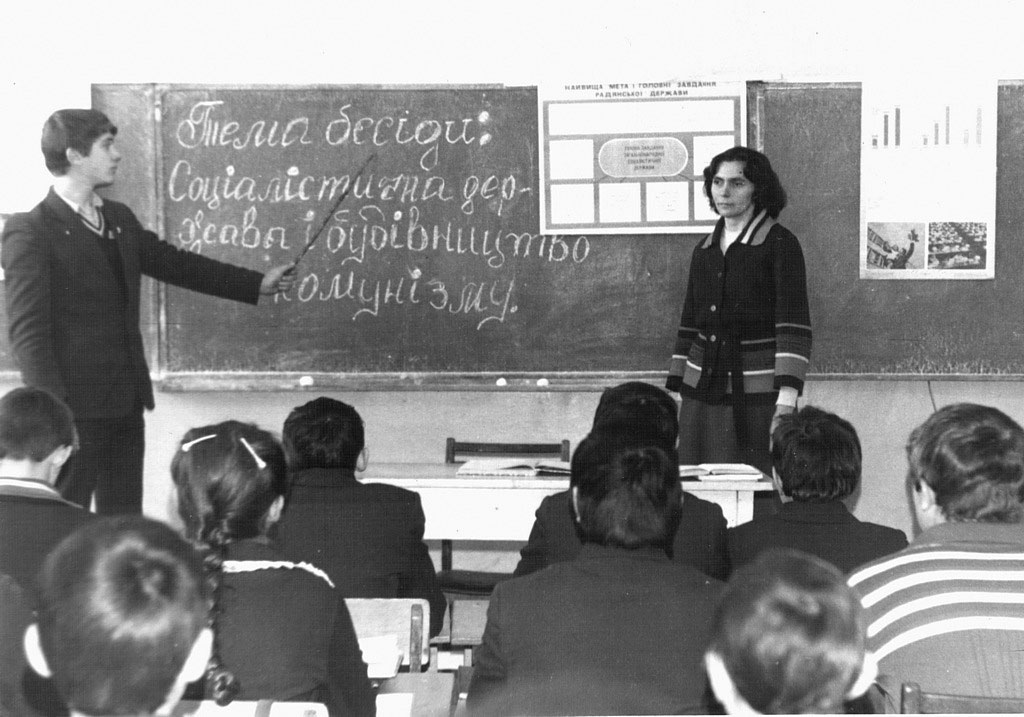 Тема бесіди:
Соціалістична дер-
жава і будівництво
комунізму.
НАЙВИЩА МЕТА І ГОЛОВНІ ЗАВДАННЯ
РАДЯНСЬКОЇ ДЕРЖАВИ